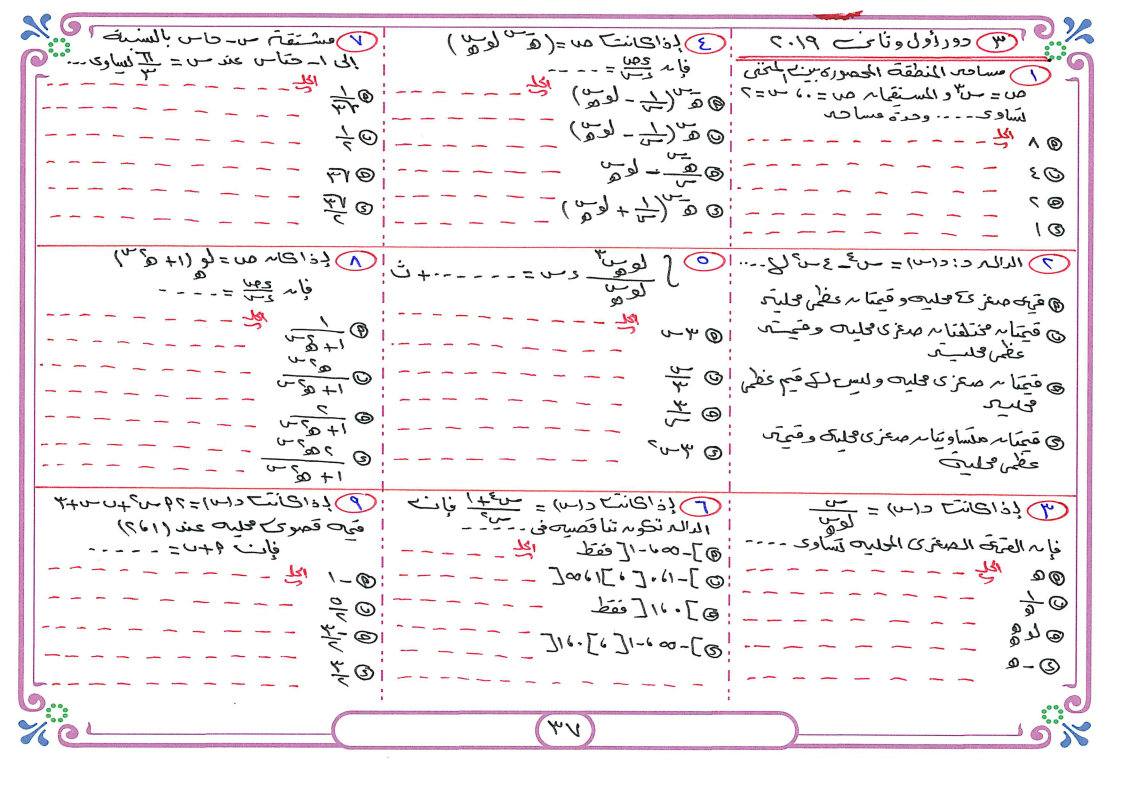 ٣ دور أول وثانى ٢٠١٩
١ مساحة المنطقة المحصورة بين المنحنى
ص = س³ و المستقيمان ص = ٠، س = ٢
تساوى .... وحدة مساحة
الحل
أ ٨
ب ٤
ج ٢
د ١
٢ الدالة د: د(س) = س⁴ - ٤س² لها....
أ قيمة صغرى محلية وقيمتان عظمى محلية
ب قيمتان مختلفتان صغرى محلية وقيمة
عظمى محلية
ج قيمتان صغرى محلية وليس لها قيم عظمى
محلية
د قيمتان متساويتان صغرى محلية وقيمة
عظمى محلية
٣ إذا كانت د(س) = س / لو_هـ س
فإن القيمة الصغرى المحلية تساوى ....
الحل
أ هـ
ب ١/هـ
ج لو_هـ هـ
د -هـ
٤ إذا كانت ص = (هـ^س لو_هـ س)
فإن ءص/ءس = ....
الحل
أ هـ^س (١/س - لو_هـ س)
ب هـ^س (١/س - لو_هـ س)
ج هـ^س/س - لو_هـ س
د هـ^س (١/س + لو_هـ س)
٥ ∫ لو_هـ س³ / لو_هـ س ءس = ....... + ث
الحل
أ ٣س
ب س/٣
ج ٣/س
د ٣س²
٦ إذا كانت د(س) = (س⁴+١)/س² فإن
الدالة تكون تناقصية فى .....
الحل
أ ]-∞، -١[ فقط
ب ]-١، ٠[ ، ]١، ∞[
ج ]٠، ١[ فقط
د ]-∞، -١[ ، ]٠، ١[
٧ مشتقة س - حاس بالنسبة
إلى ١ - حتاس عند س = π/٣ تساوى ...
الحل
أ ١/√٣
ب ١/٢
ج √٣
د √٣/٢
٨ إذا كان ص = لو_هـ (١ + هـ^٢س)
فإن ءص/ءس = ....
الحل
أ ١/(١+هـ^٢س)
ب هـ^٢س/(١+هـ^٢س)
ج ٢/(١+هـ^٢س)
د ٢هـ^٢س/(١+هـ^٢س)
٩ إذا كانت د(س) = ٢أس² + ب س + ٣
قيمة قصوى محلية عند (١، ٢)
فإن أ + ب = .....
الحل
أ -١
ب ٥/٢
ج -٣/٢
د ٣/٢
٣٧